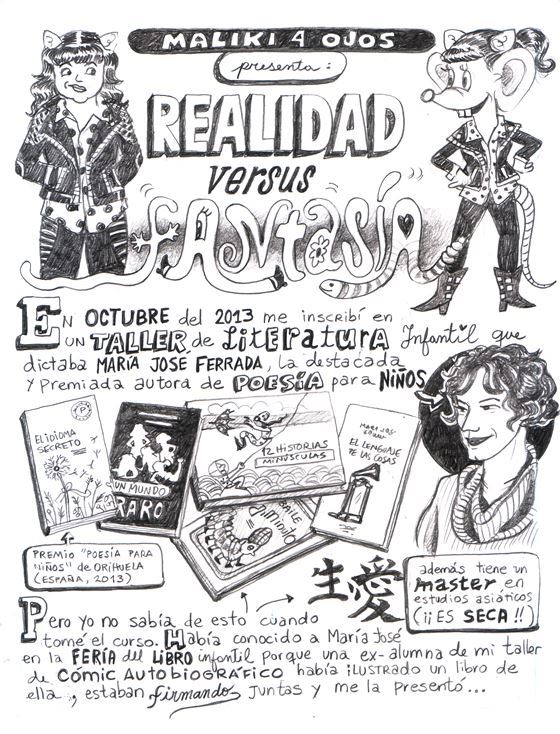 MALIKI 4 OJOS
presenta:
REALIDAD
versus
FANtaSÍA
EN OCTUBRE del 2013 me inscribí en
UN TALLER de LitERatURA Infantil que
dictaba MARÍA JOSÉ FERRADA, la destacada
y premiada autora de POESÍA para NIÑOS
EL IDIOMA
SECRETO
UN MUNDO
RARO
12 HISTORIAS
MINÚSCULAS
EL LENGUAJE
DE LAS COSAS
PREMIO "POESÍA PARA
NIÑOS" de ORIHUELA
(ESPAÑA, 2013)
生愛
además tiene un
master en
estudios asiáticos
(¡¡ES SECA!!)
Pero yo no sabía de esto cuando
tomé el curso. Había conocido a María José
en la FERIA del LIBRO infantil porque una ex-alumna de mi taller
de CÓMIC AUTOBIOGRÁFICO había ilustrado un libro de
ella, estaban firmando juntas y me la presentó...